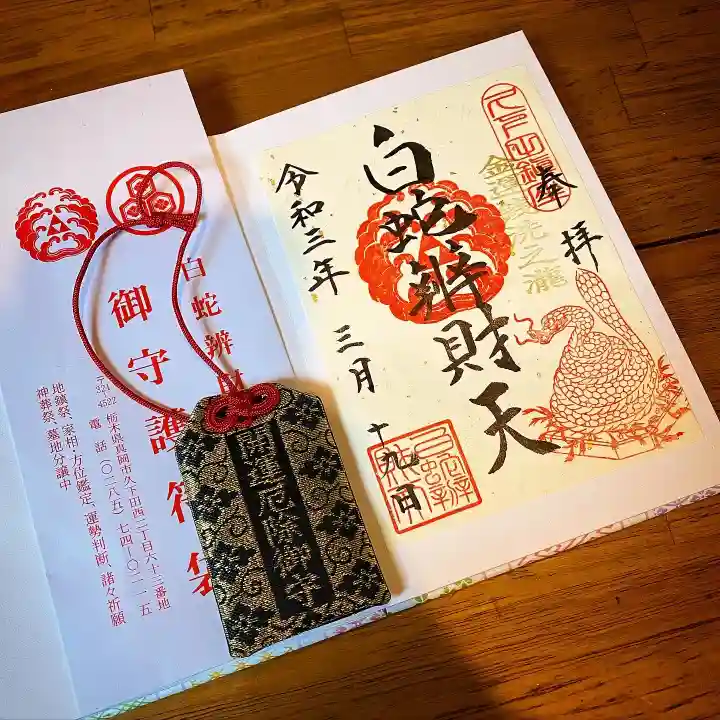 奉拝
金運銭洗之滝
白蛇辨財天
令和三年 三月 十九日
白蛇辨財
御守護符袋
〒321-4522 栃木県真岡市久下田西二丁目六十三番地
電話 〇二八五 七四-〇二一五
地鎮祭、家相・方位鑑定、運勢判断、諸々祈願
神葬祭、墓地分譲中
開運厄除御守